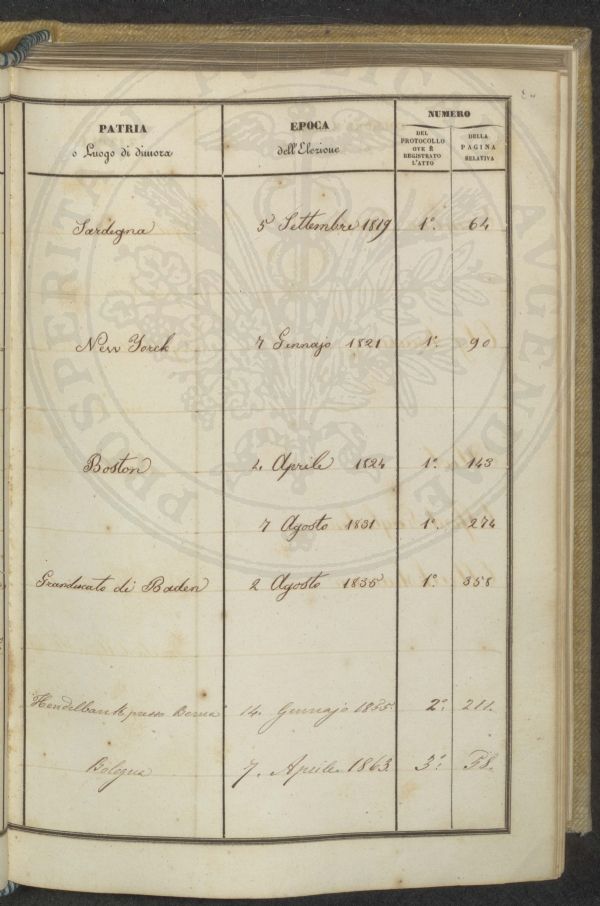 PATRIA
o Luogo di dimora
EPOCA
dell'Elezione
NUMERO
DEL
PROTOCOLLO
OVE È
REGISTRATO
L'ATTO
DELLA
PAGINA
RELATIVA
Sardegna 5 Settembre 1819 1°. 64
New Yorck 7 Gennajo 1821 1°. 90
Boston 4 Aprile 1824 1°. 143
7 Agosto 1831 1°. 274
Granducato di Baden 2 Agosto 1835 1°. 358
Hendelbank presso Berna 14. Gennajo 1855 2°. 211.
Bologna 7. Aprile 1863. 3°. 58.
PROSPERITATI PUBLICAE AUGENDAE